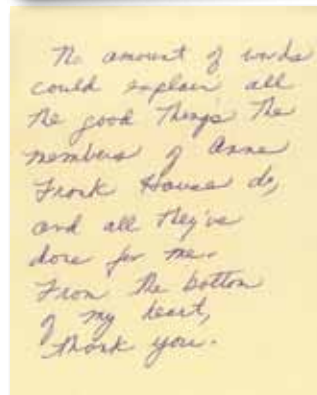 No amount of words
could explain all
the good things the
members of Anne
Frank House do,
and all they've
done for me.
From the bottom
of my heart,
thank you.